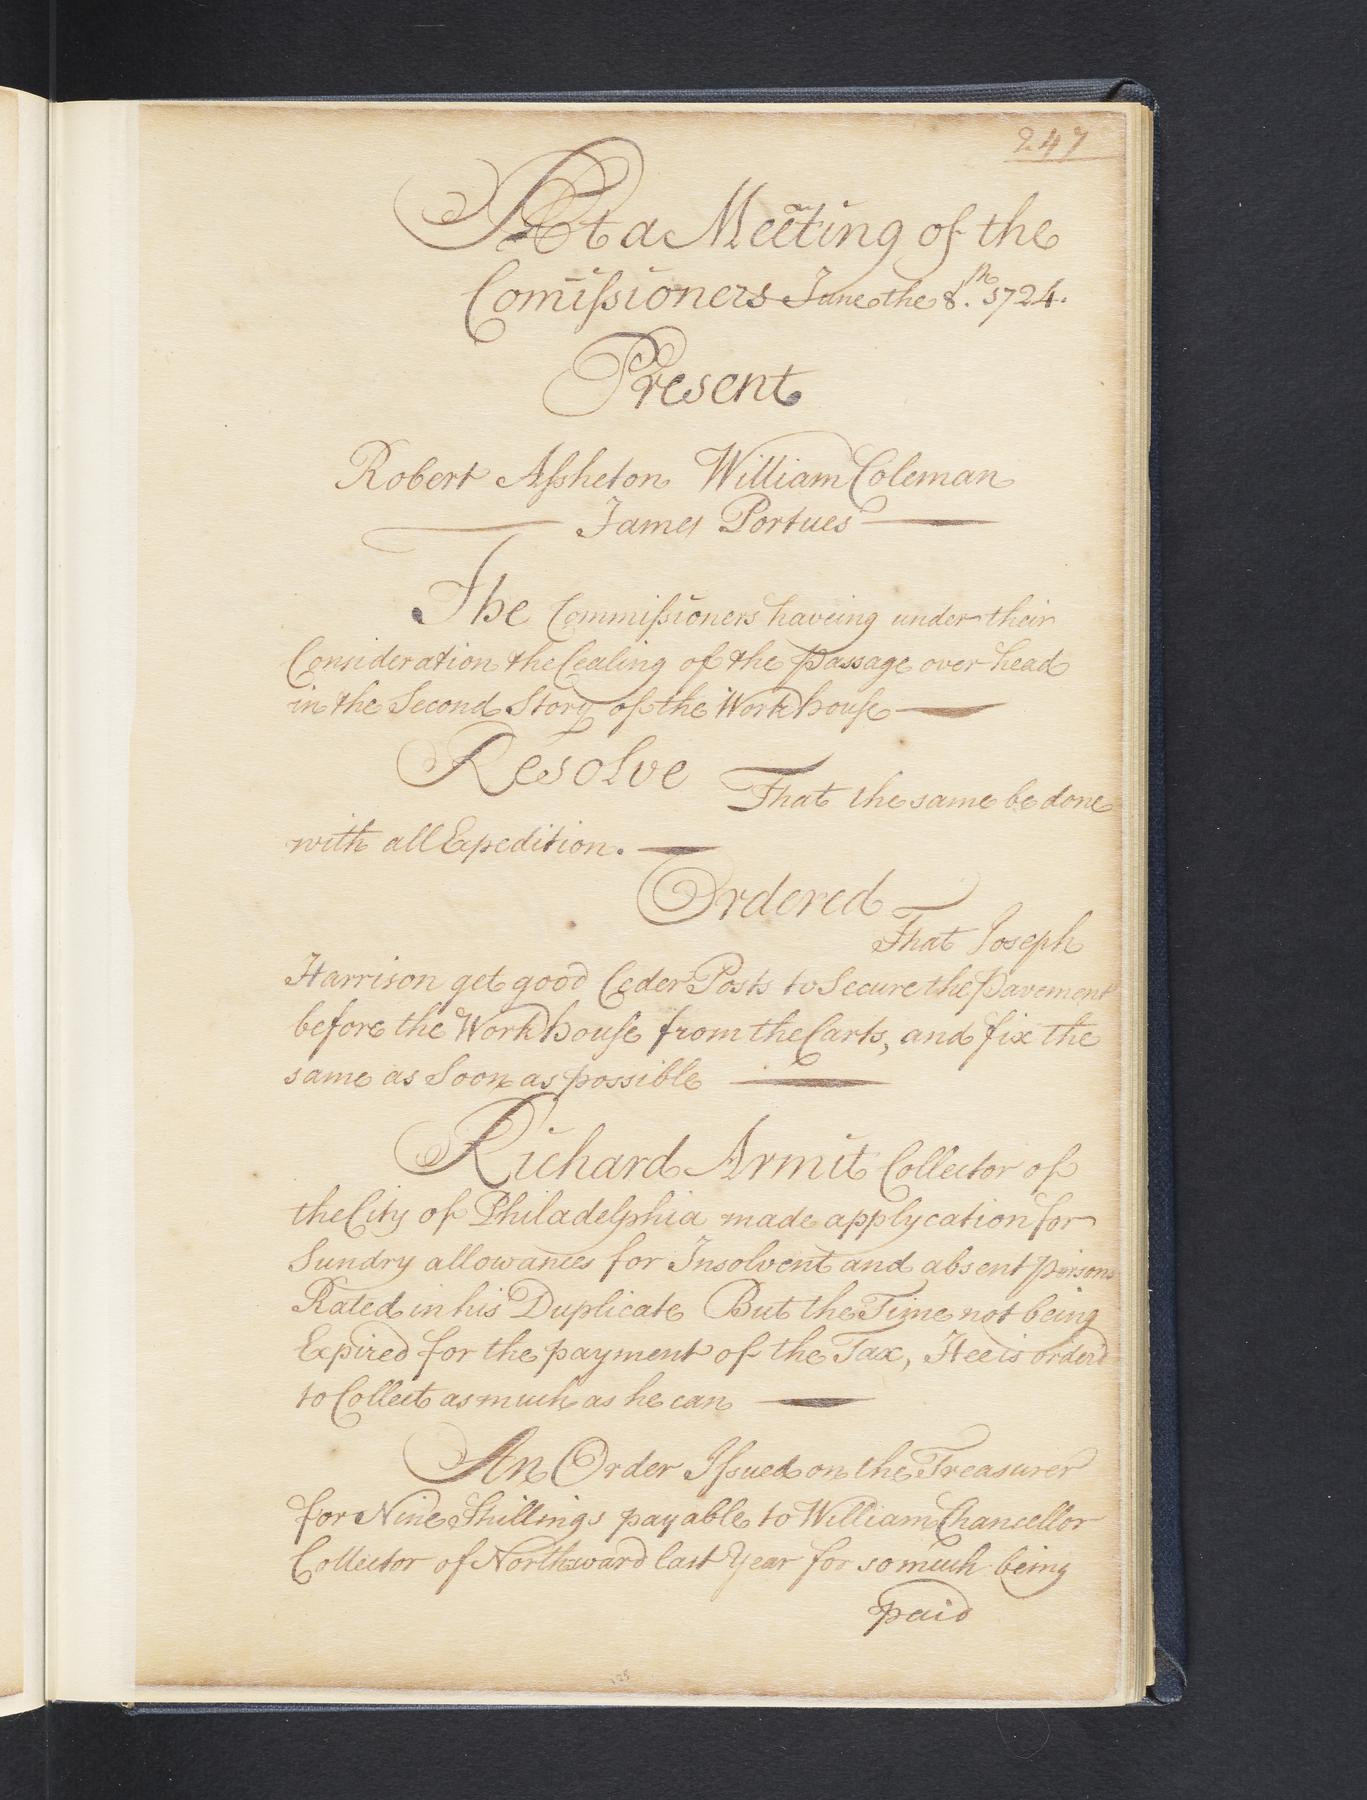 247
At a Meeting of the
Com̄issioners June the 8.th 1724.
Present
Robert Assheton William Coleman
James Portues
The Commissioners haveing under their
Consideration the Cealing of the passage over head
in the Second Story of the Workhouse
Resolve That the same be done
with all Expedition.
Ordered
That Joseph
Harrison get good Ceder Posts to Secure the pavement
before the Workhouse from the Carts, and fix the
same as Soon as possible
Richard Armit Collector of
the City of Philadelphia made applycation for
Sundry allowances for Insolvent and absent persons
Rated in his Duplicate But the Time not being
Expired for the payment of the Tax, Hee is order'd
to Collect as much as he can
An Order Issued on the Treasurer
for Nine Shillings payable to William Chancellor
Collector of Northward last Year for so much being
paid